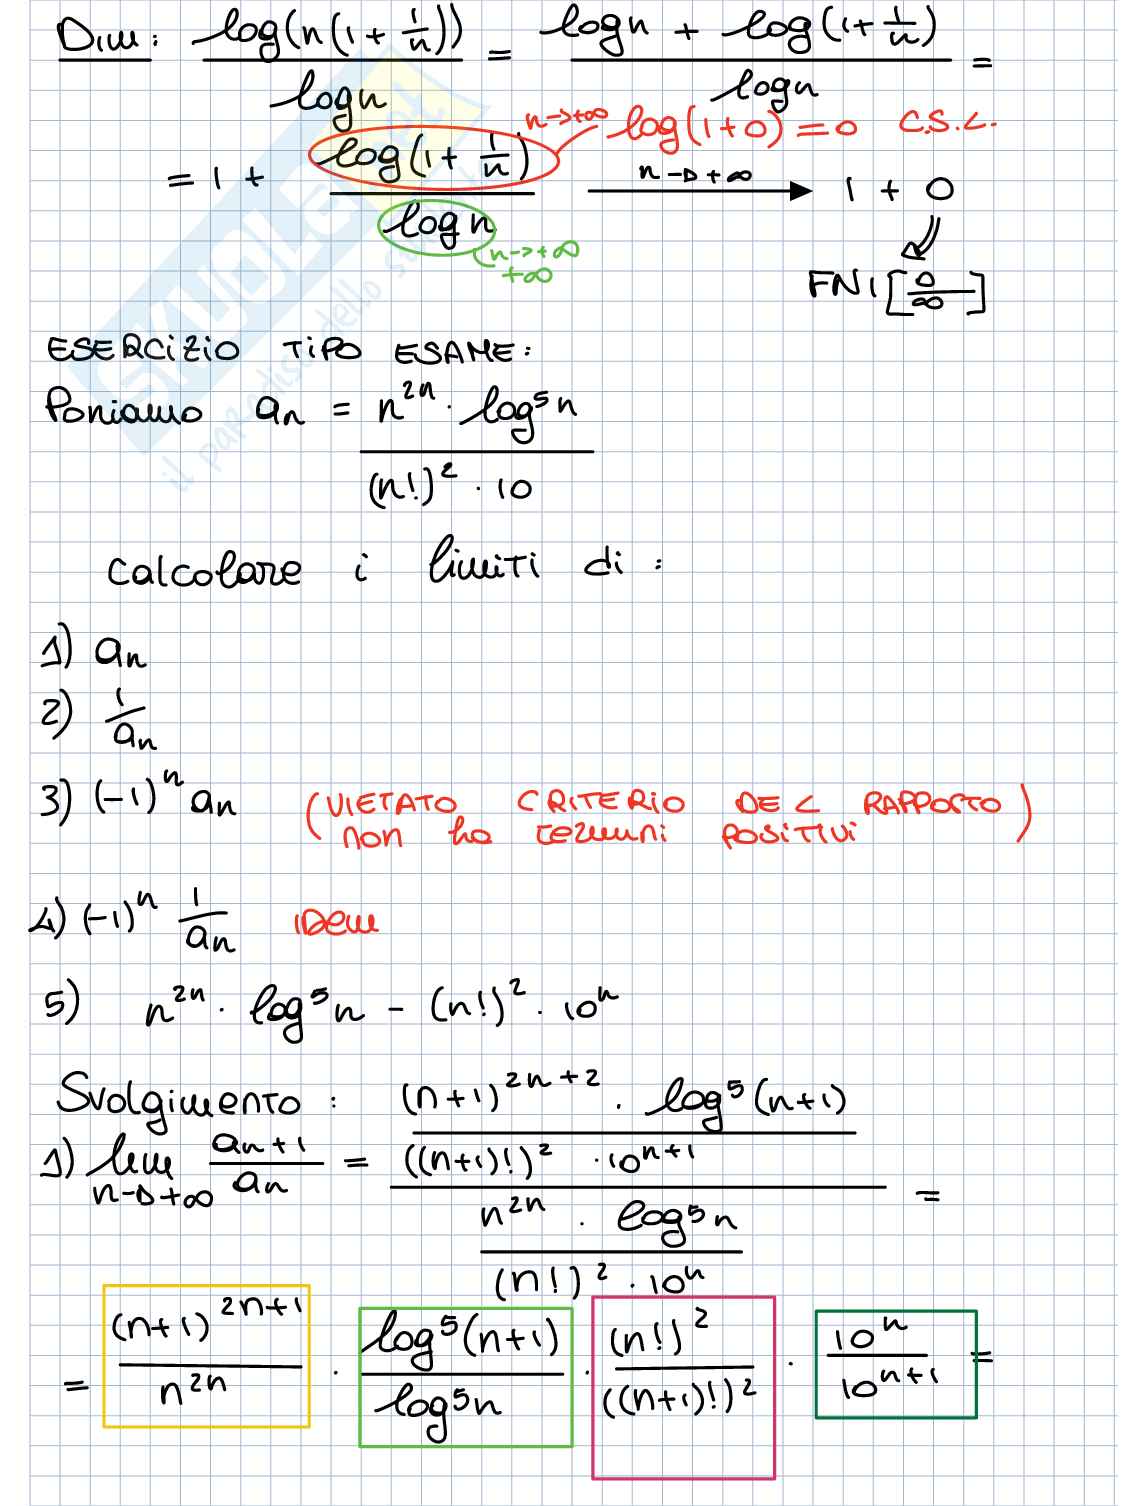 Dim: log(n(1 + 1/n)) / log n = (log n + log(1 + 1/n)) / log n =
n→+∞ log(1+0) = 0 C.S.L.
= 1 + log(1 + 1/n) / log n n→+∞ 1 + 0
n→+∞
+∞
FNI [0/∞]
ESERCIZIO TIPO ESAME:
Poniamo an = n^2n · log^5 n / (n!)^2 · 10
Calcolare i limiti di :
1) an
2) 1/an
3) (-1)^n an (VIETATO CRITERIO DEL RAPPORTO
non ha termini POSITIVI)
4) (-1)^n 1/an IDem
5) n^2n · log^5 n - (n!)^2 · 10^n
Svolgimento :
1) lim n→+∞ an+1/an = ((n+1)^2n+2 · log^5(n+1) / ((n+1)!)^2 · 10^n+1) / (n^2n · log^5 n / (n!)^2 · 10^n) =
= (n+1)^2n+1 / n^2n · log^5(n+1) / log^5 n · (n!)^2 / ((n+1)!)^2 · 10^n / 10^n+1 =
SKUOLA.net
il paradiso dello s